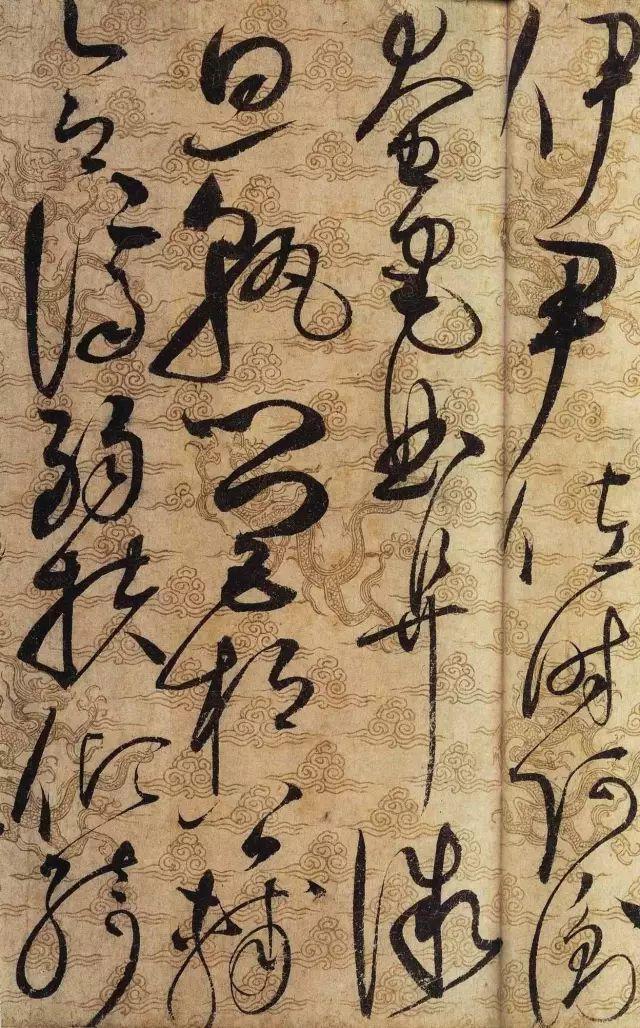 伊尹佐時阿衡
奄宅曲阜微
旦孰營桓公輔
合濟弱扶傾綺